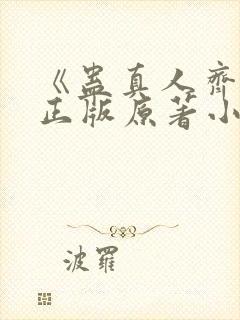 《蛊真人齐
正版原著小
波罗